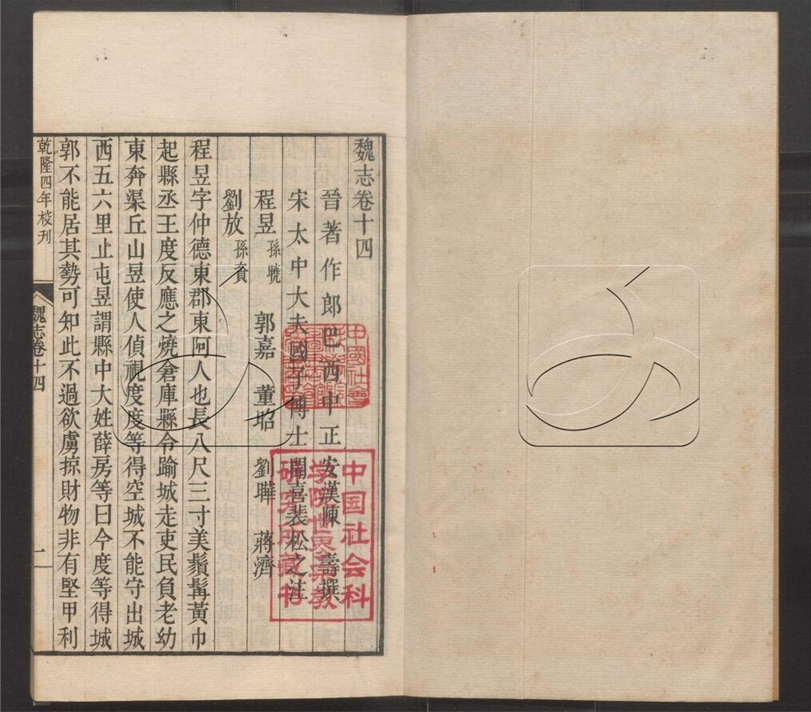 魏志卷十四
晉著作郎巴西中正安漢陳壽撰
宋太中大夫國子博士聞喜裴松之注
程昱孫曉 郭嘉 董昭 劉曄 蔣濟
劉放孫資
程昱字仲德東郡東阿人也長八尺三寸美鬚髯黃巾
起縣丞王度反應之燒倉庫縣令踰城走吏民負老幼
東奔渠丘山昱使人偵視度度等得空城不能守出城
西五六里止屯昱謂縣中大姓薛房等曰今度等得城
郭不能居其勢可知此不過欲虜掠財物非有堅甲利
乾隆四年校刊
魏志卷十四
中国社会科
学院世界宗教
研究所藏书